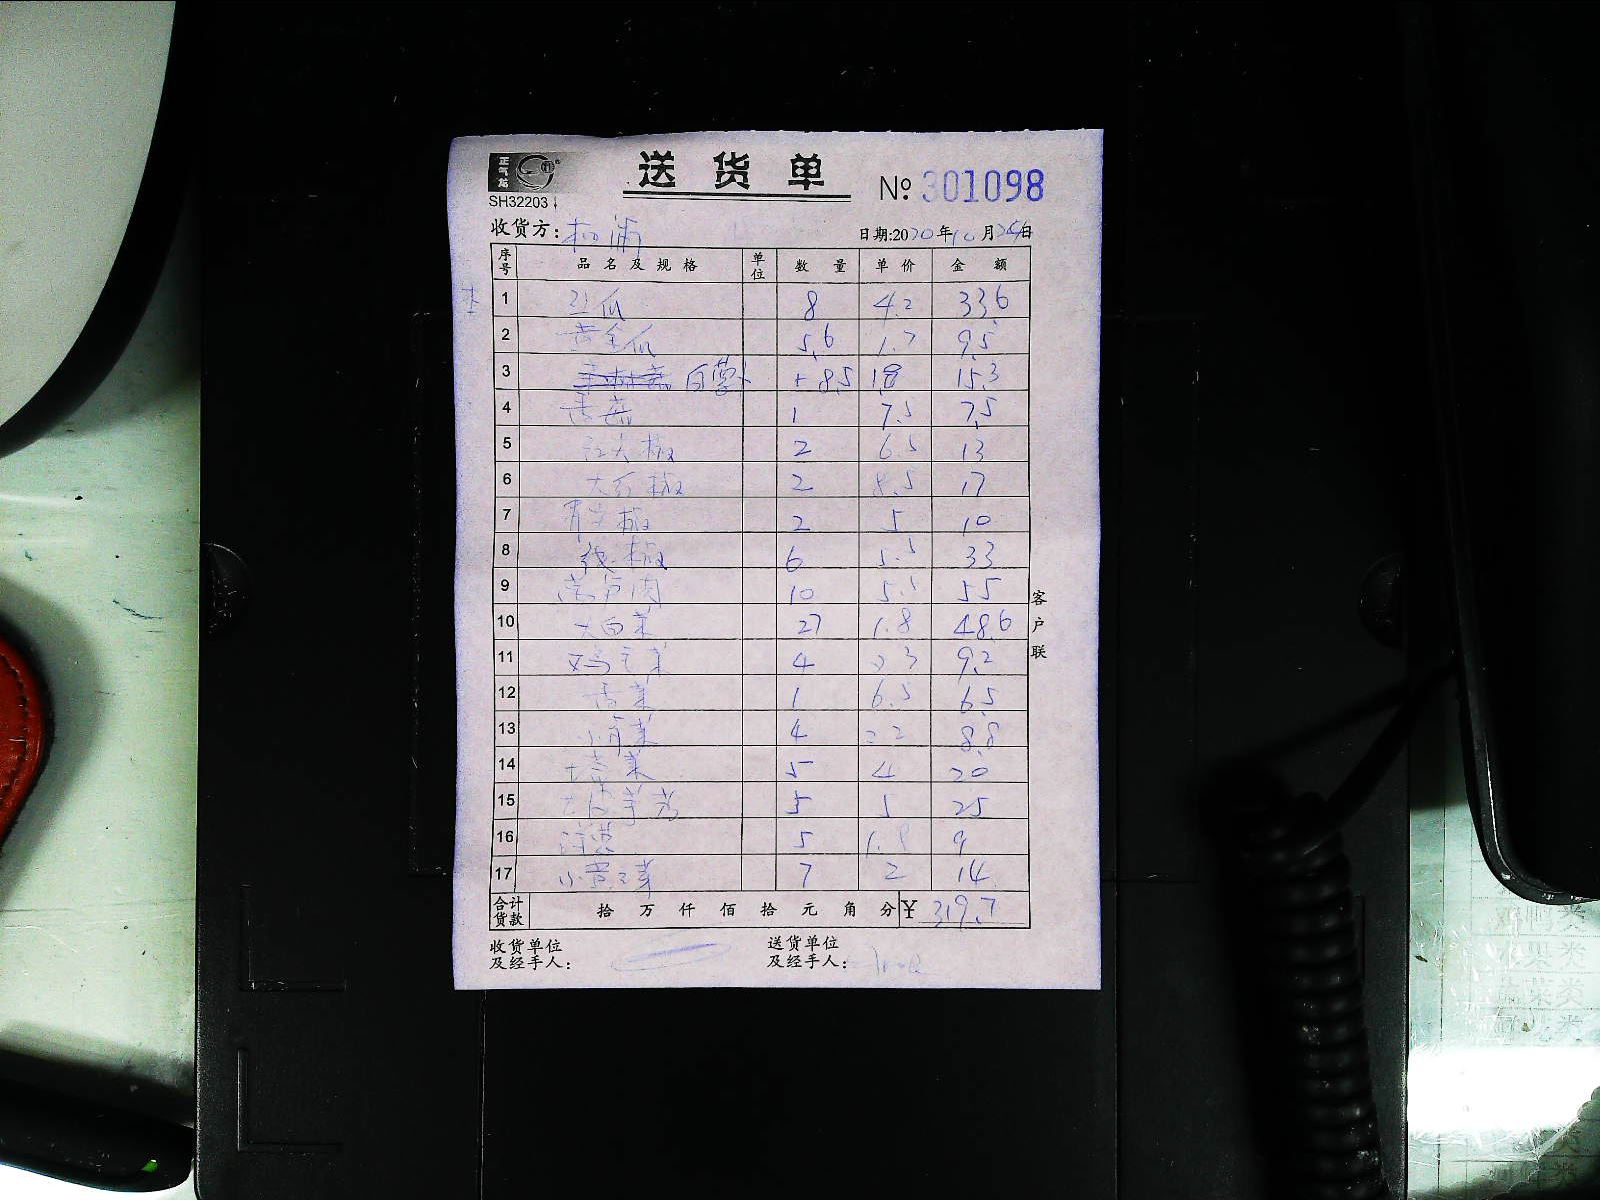 正气龙
送货单
SH32203
No. 301098
收货方: 杨浦
日期:2020年10月24日
序号 品名及规格 单位 数量 单价 金额
1 丝瓜 8 4.2 33.6
2 黄金瓜 5.6 1.7 9.5
3 白萝卜 8.5 1.8 15.3
4 香菇 1 7.5 7.5
5 红尖椒 2 6.5 13
6 大红椒 2 8.5 17
7 青尖椒 2 5 10
8 线椒 6 5.5 33
9 10 5.5 55
10 大白菜 27 1.8 48.6
11 鸡毛菜 4 2.3 9.2
12 香菜 1 6.5 6.5
13 小青菜 4 2.2 8.8
14 菜 5 4 20
15 5 5 25
16 洋葱 5 1.8 9
17 小 菜 7 2 14
合计货款 拾万仟佰拾元角分 ¥ 319.7
收货单位及经手人:
送货单位及经手人:
客户联
果类
蔬菜类